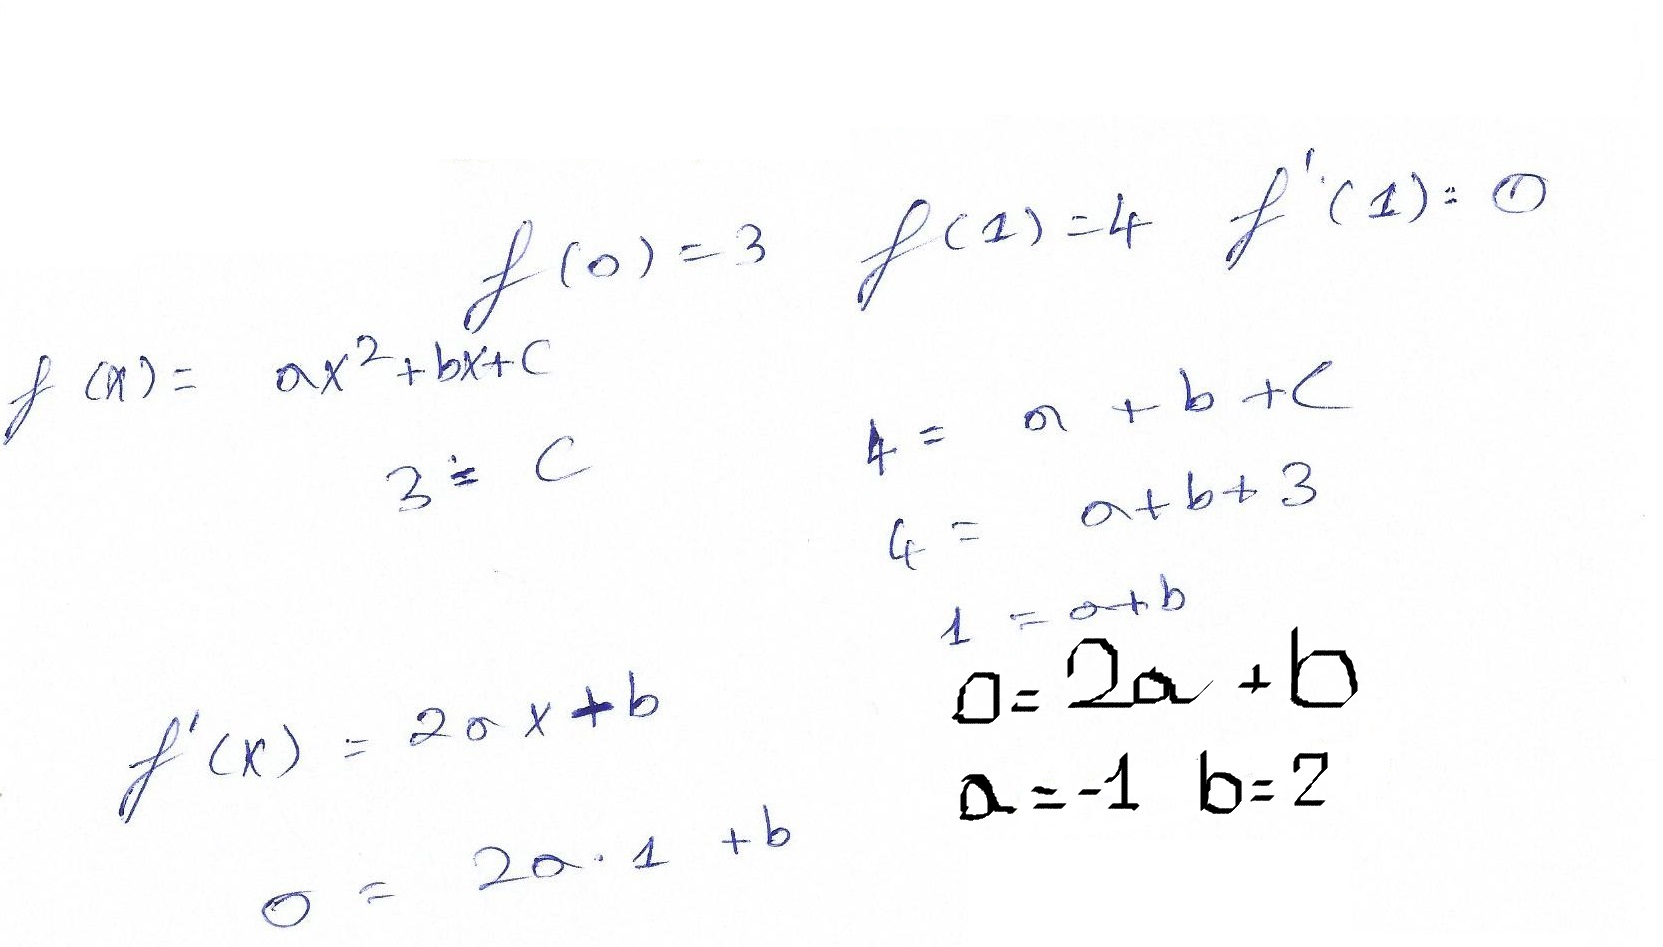 f(0)=3 f(1)=4 f'(1)=0
f(x)= ax²+bx+c
3=c
4= a+b+c
4= a+b+3
1=a+b
0=2a+b
a=-1 b=2
f'(x)=2ax+b
0=2a·1+b